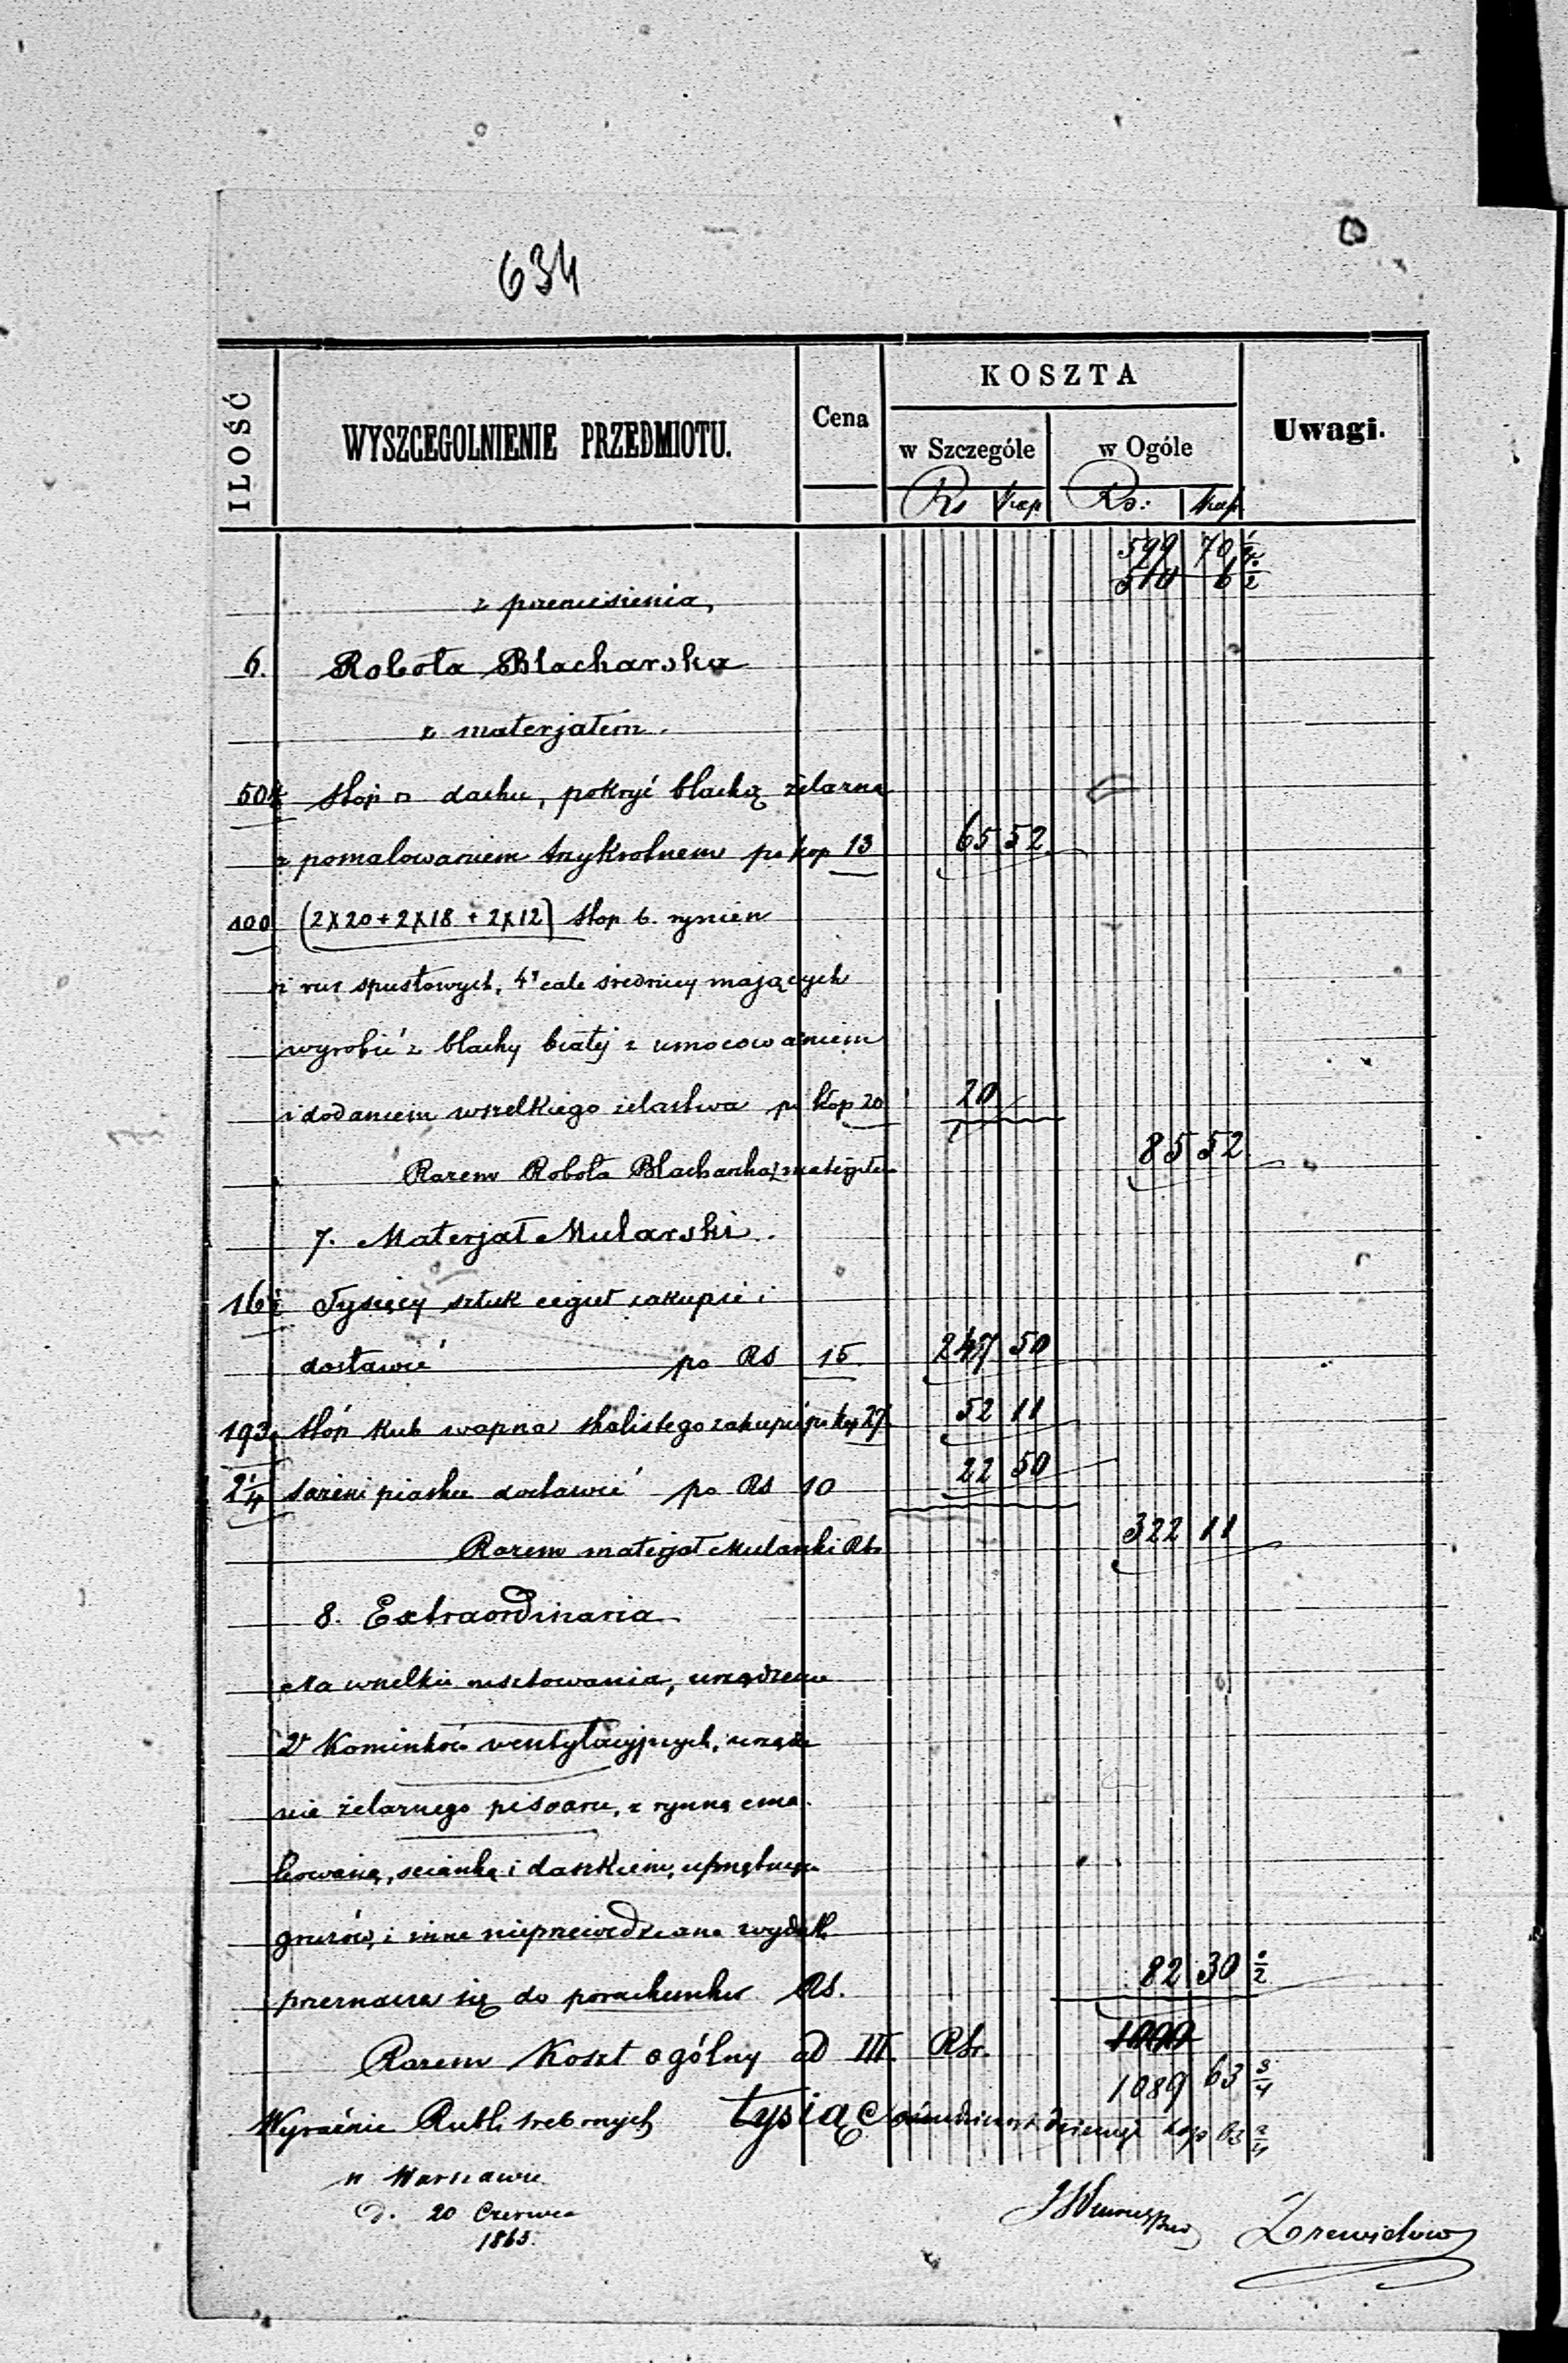 634
ILOŚĆ WYSZCEGOLNIENIE PRZEDMIOTU. Cena KOSZTA Uwagi.
w Szczególe w Ogóle
Rs kop Rs: kop
599 70
z przeniesienia, 510 6 ½
6. Robota Blacharska
z materjałem.
504 stóp □ dachu, pokryć blachą żelazną
z pomalowaniem trzykrotnem po kop 13 65 52
100 (2X20+2X18+2X12) stop b. rynien
i rur spustowych, 4" cale średnicy mających
wyrobić z blachy białej z umocowaniem
i dodaniem wszelkiego żelastwa po kop 20 20
Razem Robota Blacharska z materjałem 85 52
7. Materjał Mularski.
16½ Tysięcy sztuk cegieł zakupić i
dostawić po RS 15. 247 50
193 stóp kub wapna skalistego zakupić po kop 27 52 11
2¼ sążeni piasku dostawić po RS 10 22 50
Razem materjał Mularski Rs 322 11
8. Extraordinaria
Na wszelkie rusztowania, urządzenie
2 Kominków wentylacyjnych, urządze
nie żelaznego pisoaru, z rynną ema.
liowaną, scianką i daszkiem, uprzątnięcie
gruzów, i inne nieprzewidziane wydatk.
przeznacza się do porachunku RS. 82 30 ½
Razem Koszt ogólny ad III. Rsr. 1000
1089 63 ¾
Wyraźnie Rubli srebrnych tysiąc ośmdziesiąt dziewięć kop 63 ¾
w Warszawie
d. 20 Czerwca
1865.